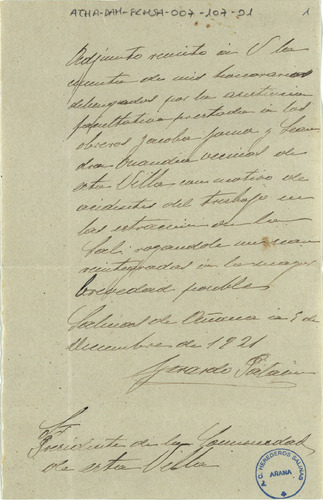 ATHA-DAH-FCHSA-007-107-01
1
Adjunto remito a V la
cuenta de mis honorarios
devengados por la asistencia
facultativa prestada a los
obreros Jacoba y
vecinos de
esta Villa con motivo de
acidentes del trabajo en
las estracion de la
Sal; rogandole me sean
reintegradas a la mayor
brevedad posible
Salinas de Añana a 5 de
Diciembre de 1921
Gerardo
Sr
Presidente de la Comunidad
de esta Villa
C. HEREDEROS SALINAS
AÑANA